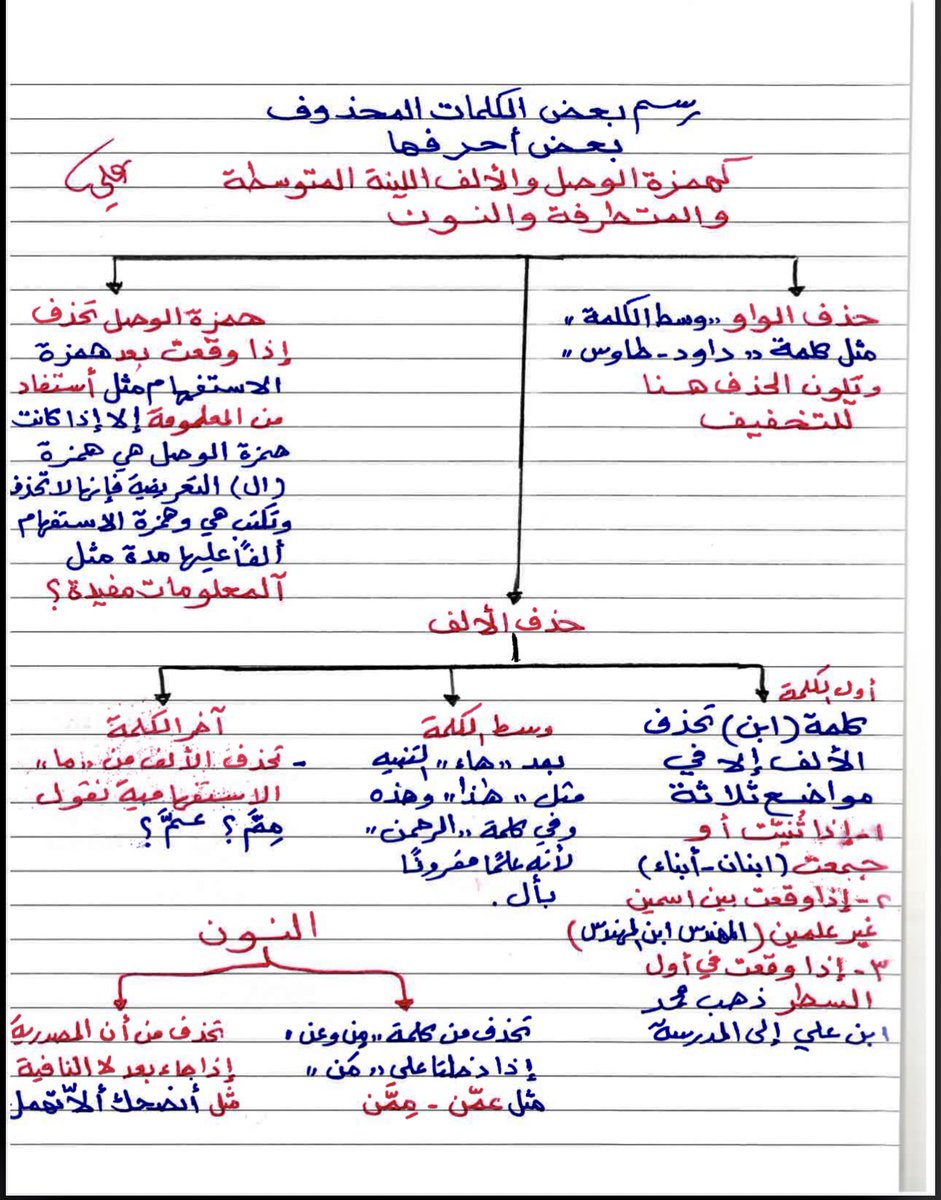 رسم بعض الكلمات المحذوف
بعض أحرفها
كهمزة الوصل والألف اللينة المتوسطة
والمتطرفة والنون
علي
حذف الواو "وسط الكلمة"
مثل كلمة "داود - طاوس"
ويكون الحذف هنا
للتخفيف
همزة الوصل تحذف
إذا وقعت بعد همزة
الاستفهام مثل أستفاد
من المعلومة إلا إذا كانت
همزة الوصل هي همزة
(ال) التعريفية فإنها لا تحذف
وتكتب هي وهمزة الاستفهام
ألفًا عليها مدة مثل
آلمعلومات مفيدة؟
حذف الألف
أول الكلمة
كلمة (ابن) تحذف
الألف إلا في
مواضع ثلاثة
١- إذا ثُنيّت أو
جمعت (ابنان - أبناء)
٢- إذا وقعت بين اسمين
غير علمين (المهندس ابن المهندس)
٣- إذا وقعت في أول
السطر ذهب محمد
ابن علي إلى المدرسة
وسط الكلمة
بعد "هاء" التنبيه
مثل "هٰذا" وهذه
وفي كلمة "الرحمن"
لأنه علمًا مقرونًا
بأل.
آخر الكلمة
- تحذف الألف من "ما"
الإستفهامية نقول
مِمَّ؟ عمَّ؟
النون
تحذف من كلمة "مِن وعن"
إذا دخلتا على "مَن"
مثل عمّن - مِمَّن
تحذف من أن المصدرية
إذا جاء بعد لا النافية
مثل أنضحك ألاّ تهمل